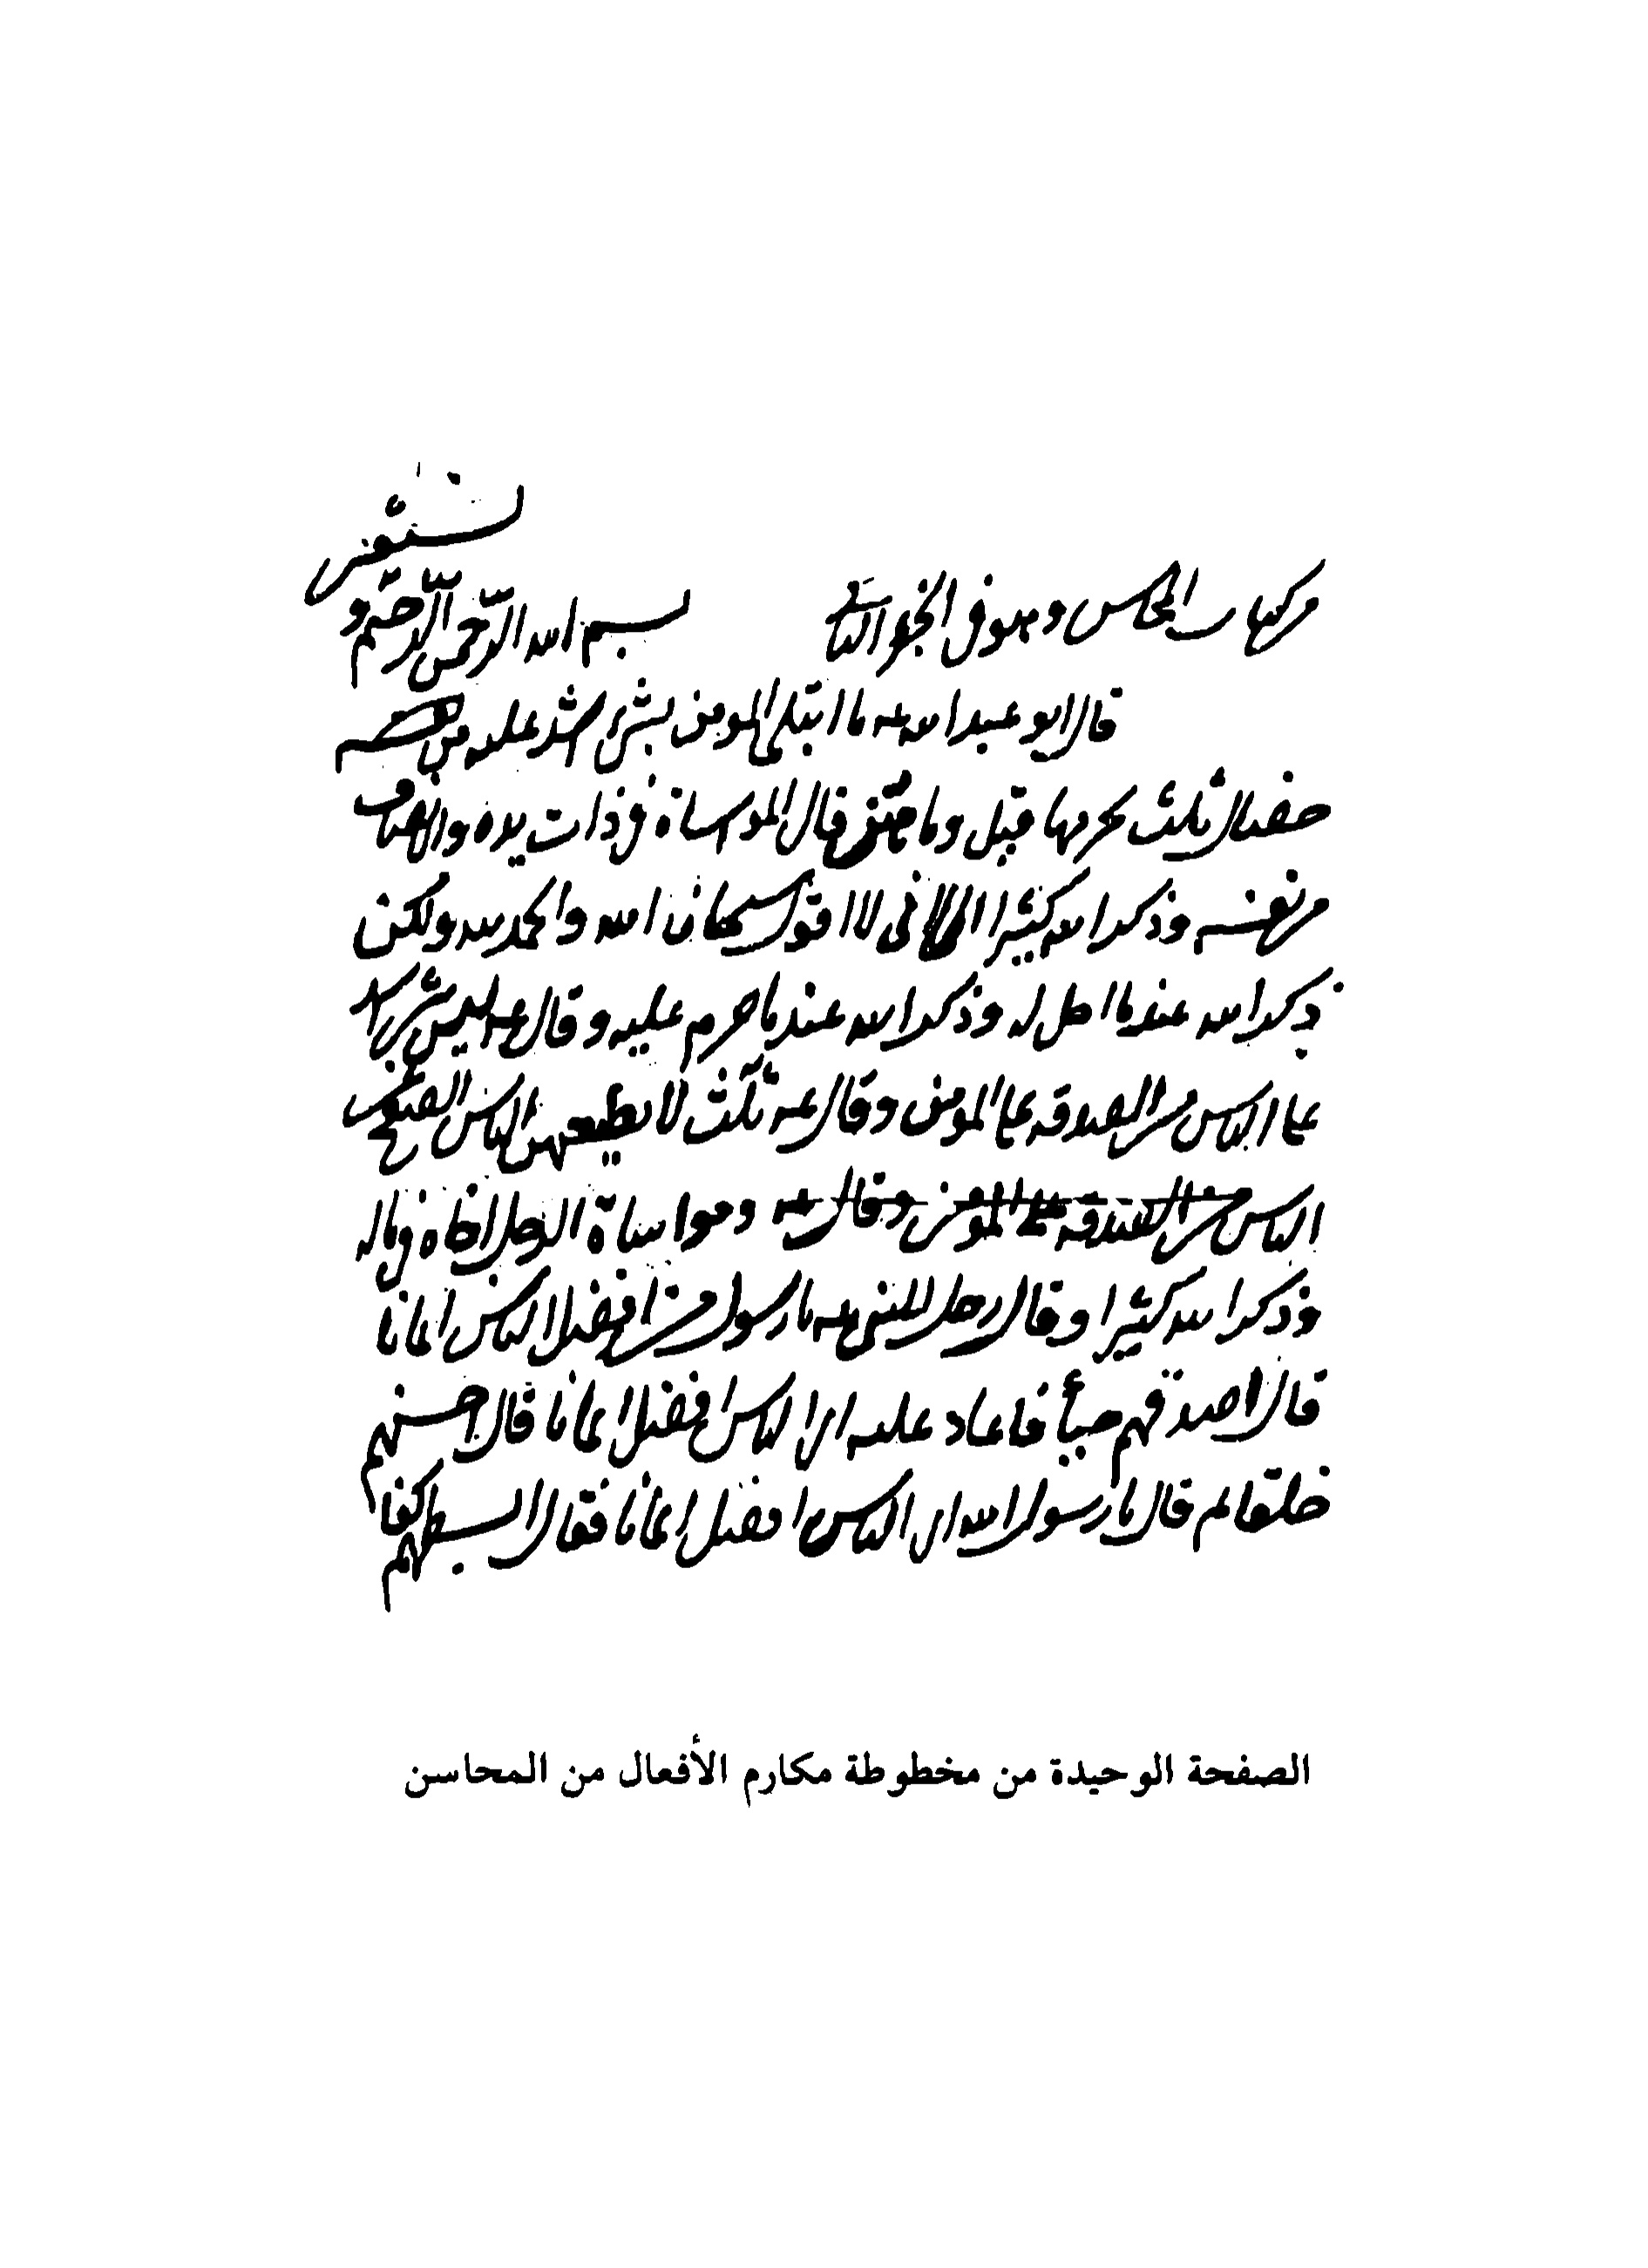 نستعين
من كتاب المحاسن وهو في الجزء الثالث بسم الله الرحمن الرحيم و
قال ابو عبد الله عه ما ابتلى المومن بشئ اشد عليه من
خصال ثلث يحرمها قيل وما هن قال المواساة في ذات يده والانصاف
من نفسه وذكر الله كثيرا اني لا اقول سبحان الله والحمد لله ولكن
ذكر الله عند ما احل له وذكر الله عند ما حرم عليه وقال عه ليس شئ
على الناس من الصدقه على المومن وقال عه ثلث لا يطيقهن الناس الصفح عن
الناس ومواساة الرجل اخاه في ماله
وذكر الله كثيرا وقال رجل للنبي عه يا رسول من افضل الناس ايمانا
قال اصدقهم حبا فاعاد عليه اي الناس افضل ايمانا قال احسنهم
خلقا ثم قال يا رسول الله اي الناس افضل ايمانا فقال ابسطهم كفا
الصفحة الوحيدة من مخطوطة مكارم الأفعال من المحاسن